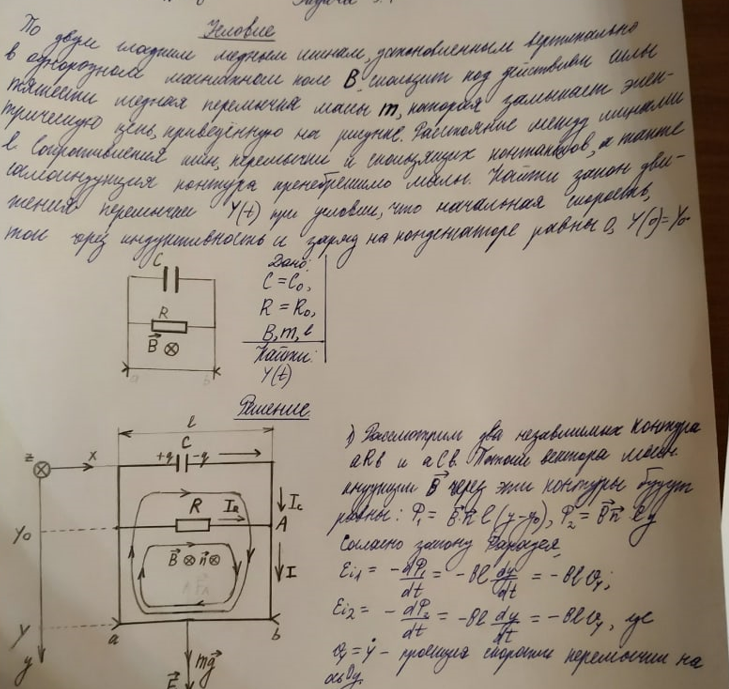 Задача
Условие
По двум гладким медным шинам, установленным вертикально
в однородном магнитном поле B, скользит под действием силы
тяжести медная перемычка массы m, которая замыкает элек-
трическую цепь, приведённую на рисунке. Расстояние между шинами
l. Сопротивления шин, перемычки и скользящих контактов, а также
самоиндукция контура пренебрежимо малы. Найти закон дви-
жения перемычки Y(t) при условии, что начальная скорость,
ток через индуктивность и заряд на конденсаторе равны 0, Y(0)=Y₀
C
R
B⃗ ⊗
a b
Дано:
C = C₀,
R = R₀,
B, m, l
Найти:
Y(t)
Решение
l
C
+q -q
z ⊗ x
R I_R
I_C
A
Y₀
B⃗ ⊗ n⃗ ⊗
I
Y
a b
y
mg⃗
F⃗
1) Рассмотрим два независимых контура
aRb и aCb. Потоки вектора магн.
индукции B⃗ через эти контуры будут
равны: Ф₁ = B⃗·n⃗ l (y-y₀), Ф₂ = B⃗·n⃗ ly
Согласно закону Фарадея,
Ei₁ = -dФ₁/dt = -Bl dy/dt = -Bl𝑣y;
Ei₂ = -dФ₂/dt = -Bl dy/dt = -Bl𝑣y, где
𝑣y = ẏ - проекция скорости перемычки на
ось Oy.